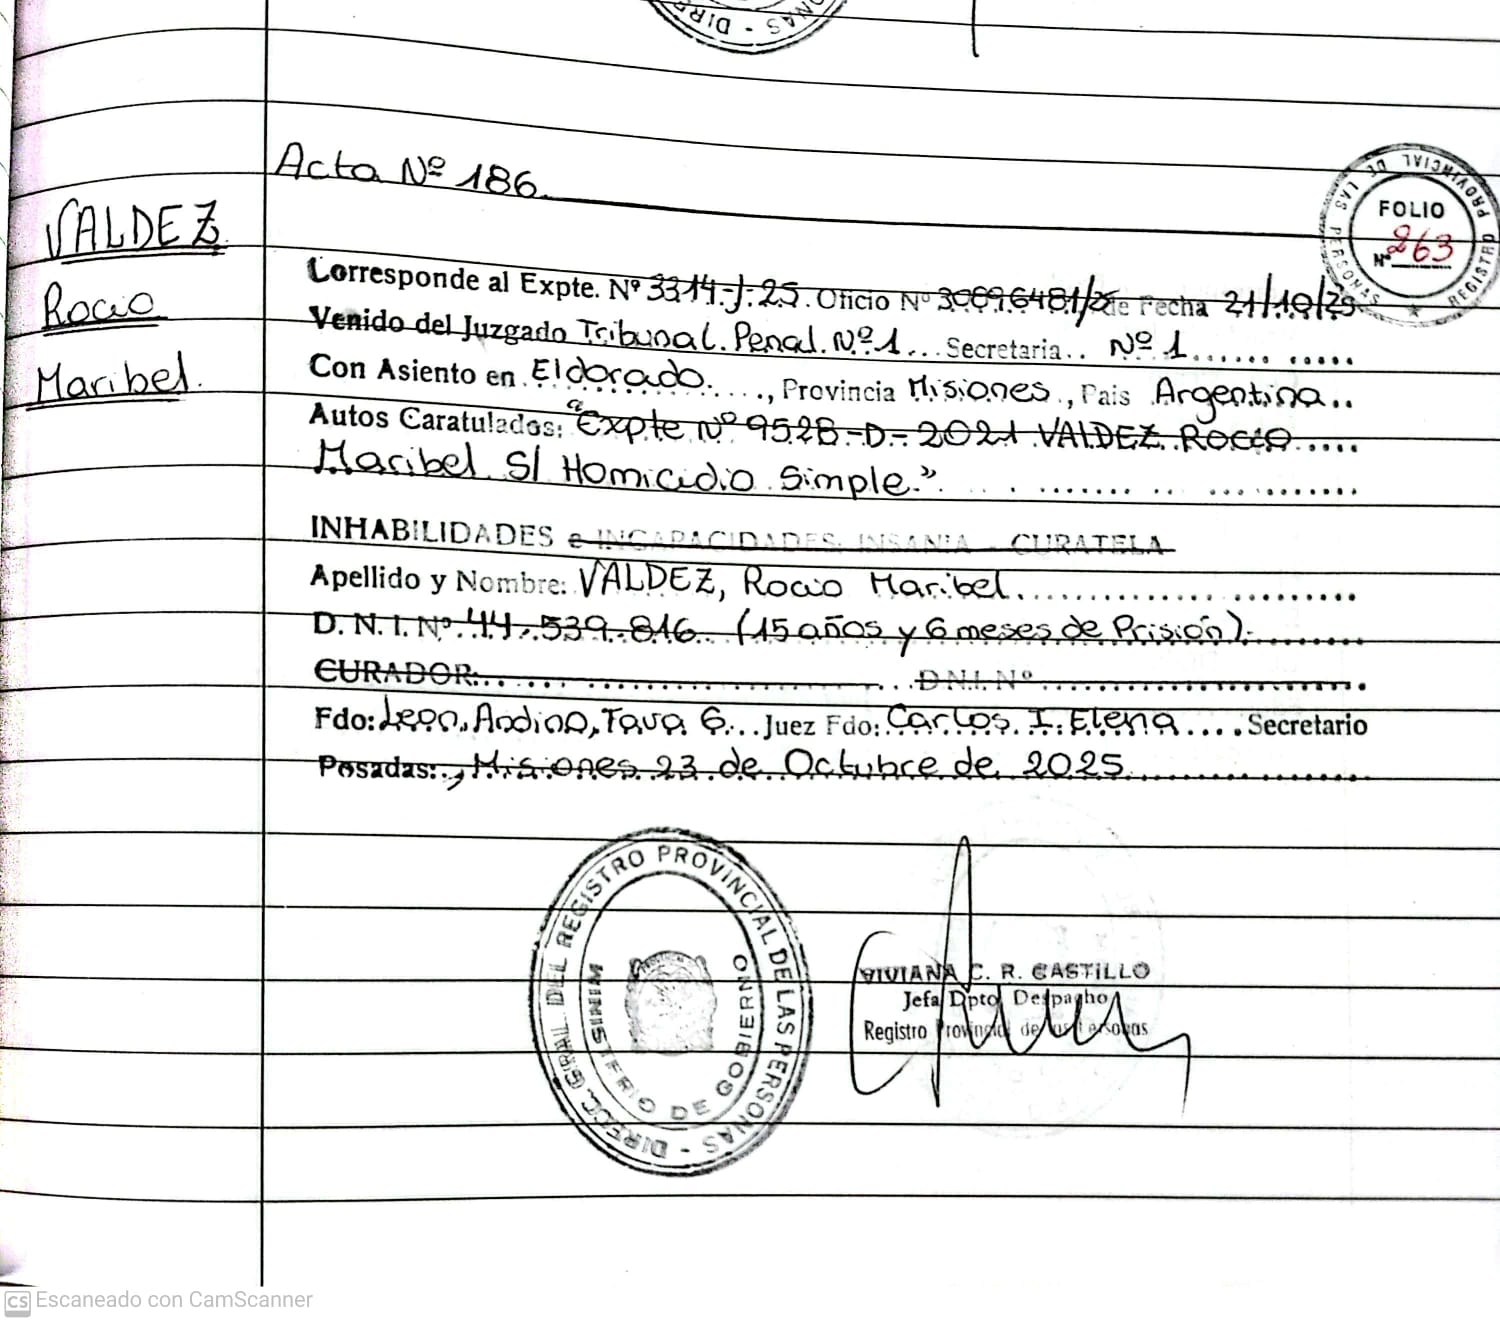 DIRE - NAS
Acta Nº 186.
VALDEZ
Rocio
Maribel.
REGISTRO PROVINCIAL DE LAS PERSONAS
FOLIO
Nº 263
Corresponde al Expte. Nº 3314-J-25. Oficio Nº de Fecha 21/10/25
Venido del Juzgado Tribunal Penal Nº1... Secretaria.. Nº 1...........
Con Asiento en Eldorado......, Provincia Misiones., Pais Argentina..
Autos Caratulados: "Expte Nº 9528-D-2021 VALDEZ Rocio.....
Maribel S/ Homicidio Simple."
INHABILIDADES e INCAPACIDADES. INSANIA - CURATELA
Apellido y Nombre: VALDEZ, Rocio Maribel.
D. N. I. Nº 44.539.816. (15 años y 6 meses de Prisión).
CURADOR:............ D.N.I. Nº............
Fdo: Leon, Andino, Tava G... Juez Fdo: Carlos. I. Elena.... Secretario
Posadas:., Misiones 23 de Octubre de 2025
DIRECC. GRAL. DEL REGISTRO PROVINCIAL DE LAS PERSONAS -
MINISTERIO DE GOBIERNO
VIVIANA C. R. CASTILLO
Jefa Dpto Despacho
Registro Provincial de las Personas
CS Escaneado con CamScanner